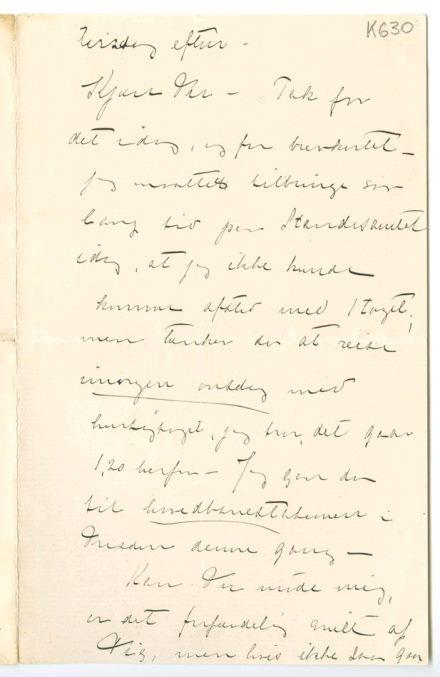 K630
Tirsdag efter –
Kjære Ven – Tak for
det idag, og for brevkortet –
Jeg maatte tilbringe saa
lang tid paa Standesamtet
idag, at jeg ikke kunde
komme afsted med 1 toget,
men tænker da at reise
imorgen onsdag med
hurtigtoget, jeg tror, det gaar
1,20 herfra – Jeg gaar da
til hovedbanestationen i
Dresden denne gang –
Kan Du møde mig,
er det forfærdelig snilt af
Dig, men hvis ikke saa gaar